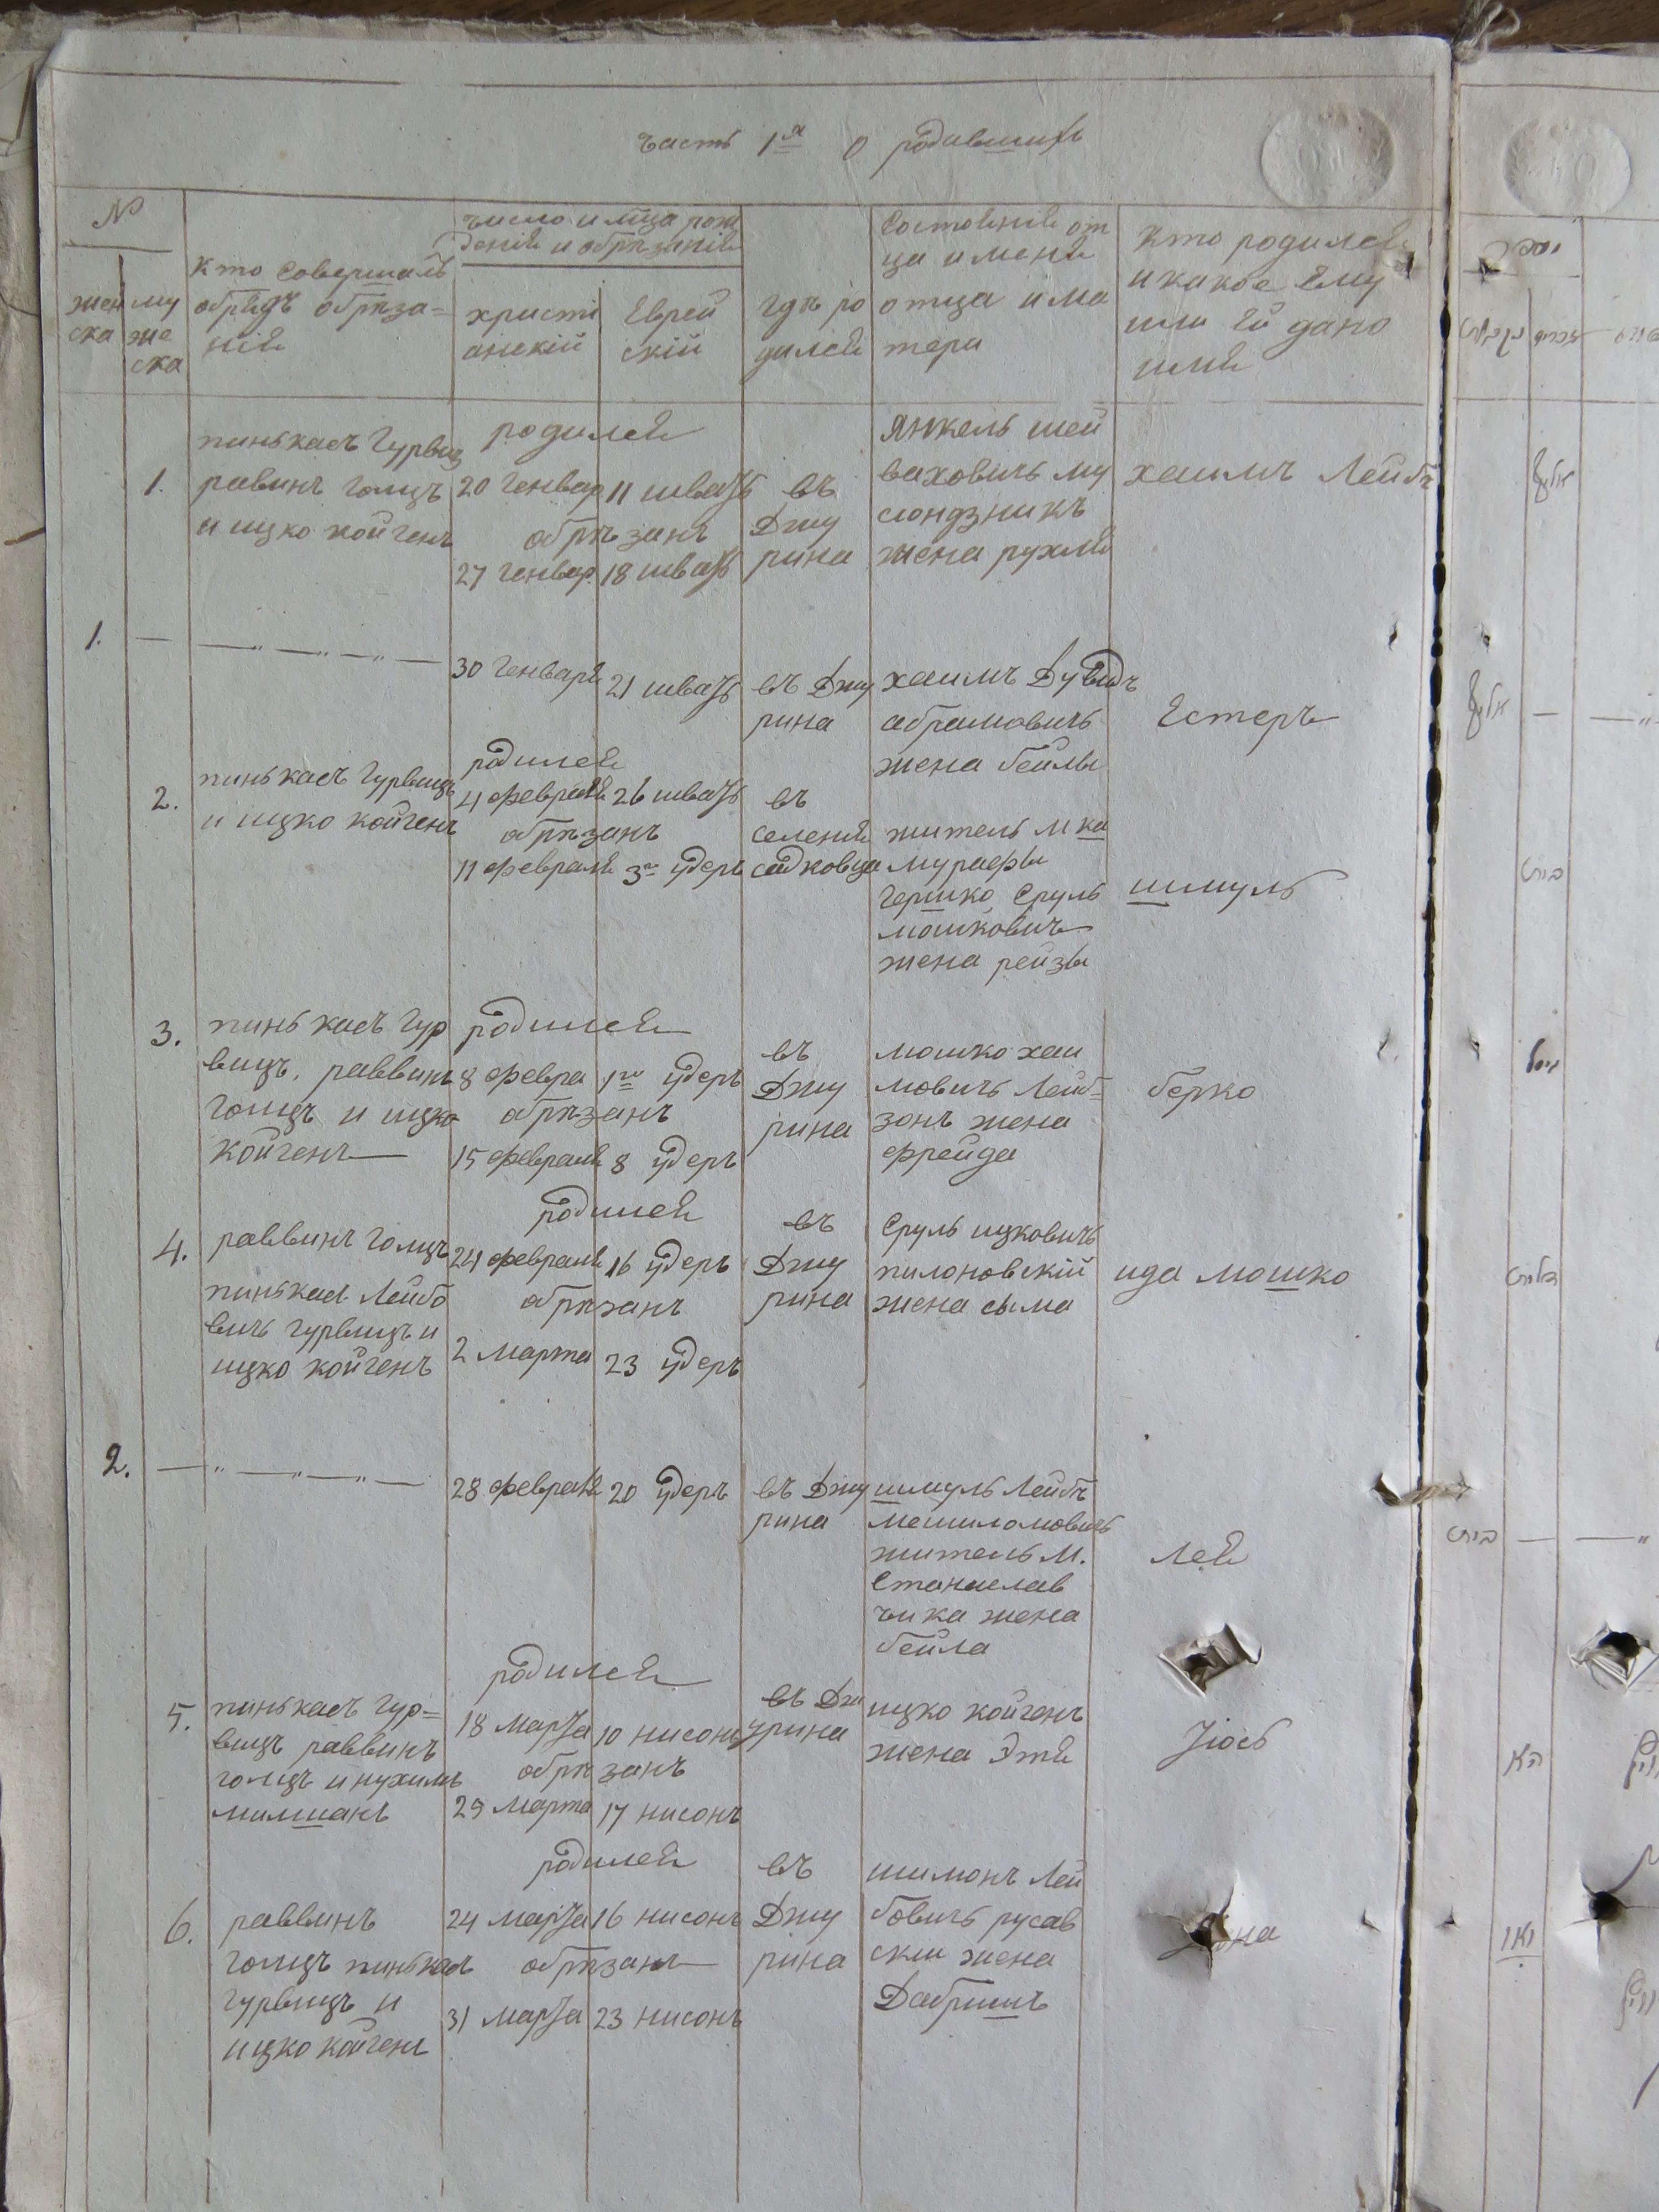 часть 1я о родившихъ
№
жен
ска
му
же
ска
кто совершалъ
обрядъ обрѣза=
нія
число и мца рож
денія и обрѣзанія
христі
анскій
Еврей
скій
гдѣ ро
дился
состояніе от
ца имена
отца и ма
тери
кто родился
и какое ему
или ей дано
имя
1.
пинькасъ Гурвиц
равинъ голцъ
и ицко койгенъ
родился
20 генвар 11 шватъ
обрѣзанъ
27 генвар. 18 шватъ
въ
Джу
рина
Янкель шей
ваховичъ му
сiондзникъ
жена рухля
хаимъ Лейбъ
1. — — „ — „ — „ —
30 Генваря 21 шватъ
въ Джу
рина
хаимъ Дувидъ
абрамовичъ
жена бейлы
Естеръ
2.
пинькасъ Гурвицъ
и ицко койгенъ
родился
4 февраля 26 шватъ
обрѣзанъ
11 февраля 3го удеръ
въ
селенія
садковца
житель м ка
мурафы
Гершко Сруль
мошковичъ
жена рейзы
шмуль
3.
пинькасъ Гур
вицъ, раввинъ
голцъ и ицко
койгенъ
родился
8 февра 1го удеръ
обрѣзанъ
15 февраля 8 удеръ
въ
Джу
рина
мошко хаи
мовичъ Лейб=
зонъ жена
фрейда
берко
4.
раввинъ голцъ
пинькас Лейбо
вичъ гурвицъ и
ицко койгенъ
родился
24 февраля 16 удеръ
обрѣзанъ
2 марта 23 удеръ
въ
Джу
рина
Сруль ицковичъ
пилоновскій
жена сыма
ида мошко
2. — „ — „ — „ —
28 февраля 20 удеръ
въ Джу
рина
шмуль Лейбъ
мешиломовичъ
житель м.
Станислав
чика жена
бейла
Лея
5.
пинькасъ Гур=
вицъ раввинъ
голцъ и нухимъ
милманъ
родился
18 марта 10 нисонъ
обрѣзанъ
25 марта 17 нисонъ
въ Дж
урина
ицко койгенъ
жена Этя
Јіось
6.
раввинъ
голцъ пинькас
гурвицъ и
ицко койген
родился
24 марта 16 нисонъ
обрѣзанъ
31 марта 23 нисонъ
въ
Джу
рина
шимонъ Лей
бовичъ русав
ски жена
Дабришъ